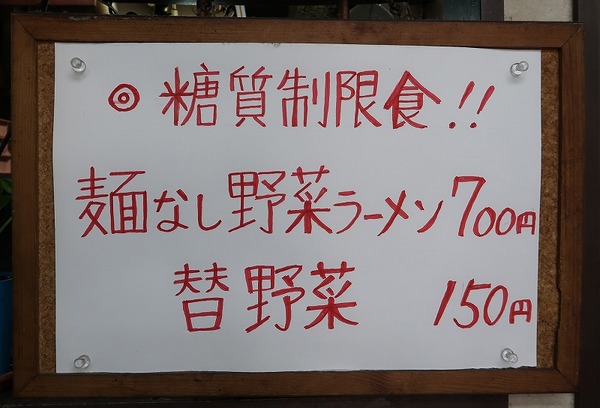 ◎ 糖質制限食!!
麺なし野菜ラーメン 700円
替野菜 150円